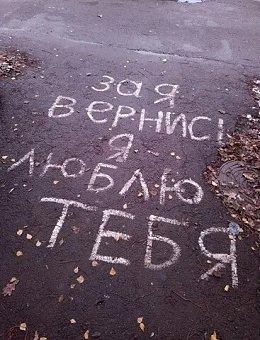 зая
вернись
я
люблю
тебя